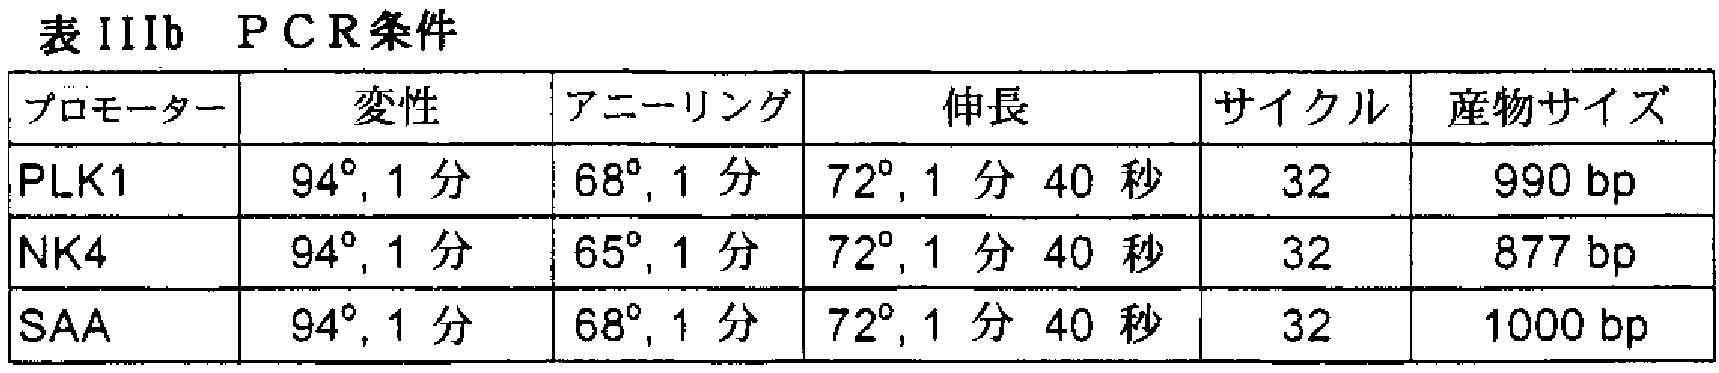 表IIIb　ＰＣＲ条件
プロモーター 変性 アニーリング 伸長 サイクル 産物サイズ
PLK1 94°, 1 分 68°, 1 分 72°, 1 分 40 秒 32 990 bp
NK4 94°, 1 分 65°, 1 分 72°, 1 分 40 秒 32 877 bp
SAA 94°, 1 分 68°, 1 分 72°, 1 分 40 秒 32 1000 bp